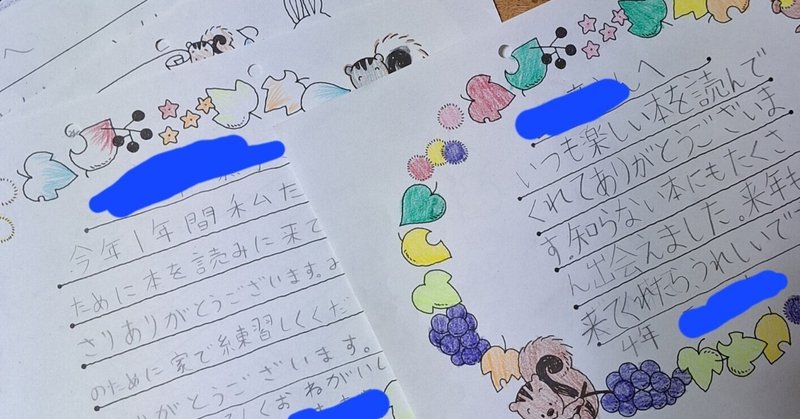 へ
今年1年間私た
ために本を読みに来て
さりありがとうございます。み
のために家で練習しくくだ
がとうございます。
くおねがいし
へ
いつも楽しい本を読んで
くれてありがとうございま
す。知らない本にもたくさ
ん出会えました。来年も
来てくれたら、うれしいで
4年